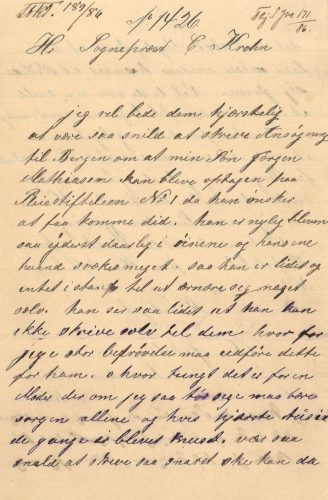 189/86
No 1426
Hr Sogneprest C Krohn
jeg vel bede dem hjærtelig
at være saa snild at skreve Ansøgning
til Bergen om at min Søn Jørgen
Mathiesen kan bleve optagen paa
Pleiestiftelsen No 1 da han ønsker
at faa komme did. han er nylig bleven
saa yderst daarlig i øinene og hansene
svækes meget. saa han er lidet og
entet i stand til at ærnære seg noget
selv. han ser saa lidet at han kan
ikke skrive selv til dem hvor for
jeg e stor bedrøvelse maa udføre dette
for ham. o hvor tungt det er for en
Moder der om jeg saa tør sige maa bære
sorgen allene og hvis hjærte
de gange er blevet knust. vær saa
snald at skreve saa snart ske kan da